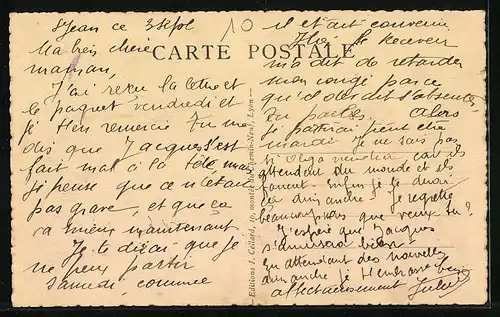 St Jean ce 3
10
Ma bien chère
maman,
CARTE POSTALE
J'ai reçu la lettre et
le paquet vendredi et
je t'en remercie Tu me
dis que Jacques s'est
fait mal à la tête, mais
je pense que ce n'était
pas grave, et que ça
va mieux maintenant.
Je te dirai que je
ne peux partir
samedi, comme
Editions J. Cellard, 10, montée du Cerf-Neuf, Lyon
il était convenu
le Receveur
m'a dit de retarder
mon congé parce
qu'il doit s'absenter,
Alors
je partirai peut être
mardi. Je ne sais pas
si Olga viendra, car ils
attendent du monde et ils
Enfin je te dirai
dimanche! Je regrette
beaucoup mais que veux tu?
J'espère que Jacques
s'amuse bien!
En attendant des nouvelles
dimanche je t'embrasse bien
affectueusement